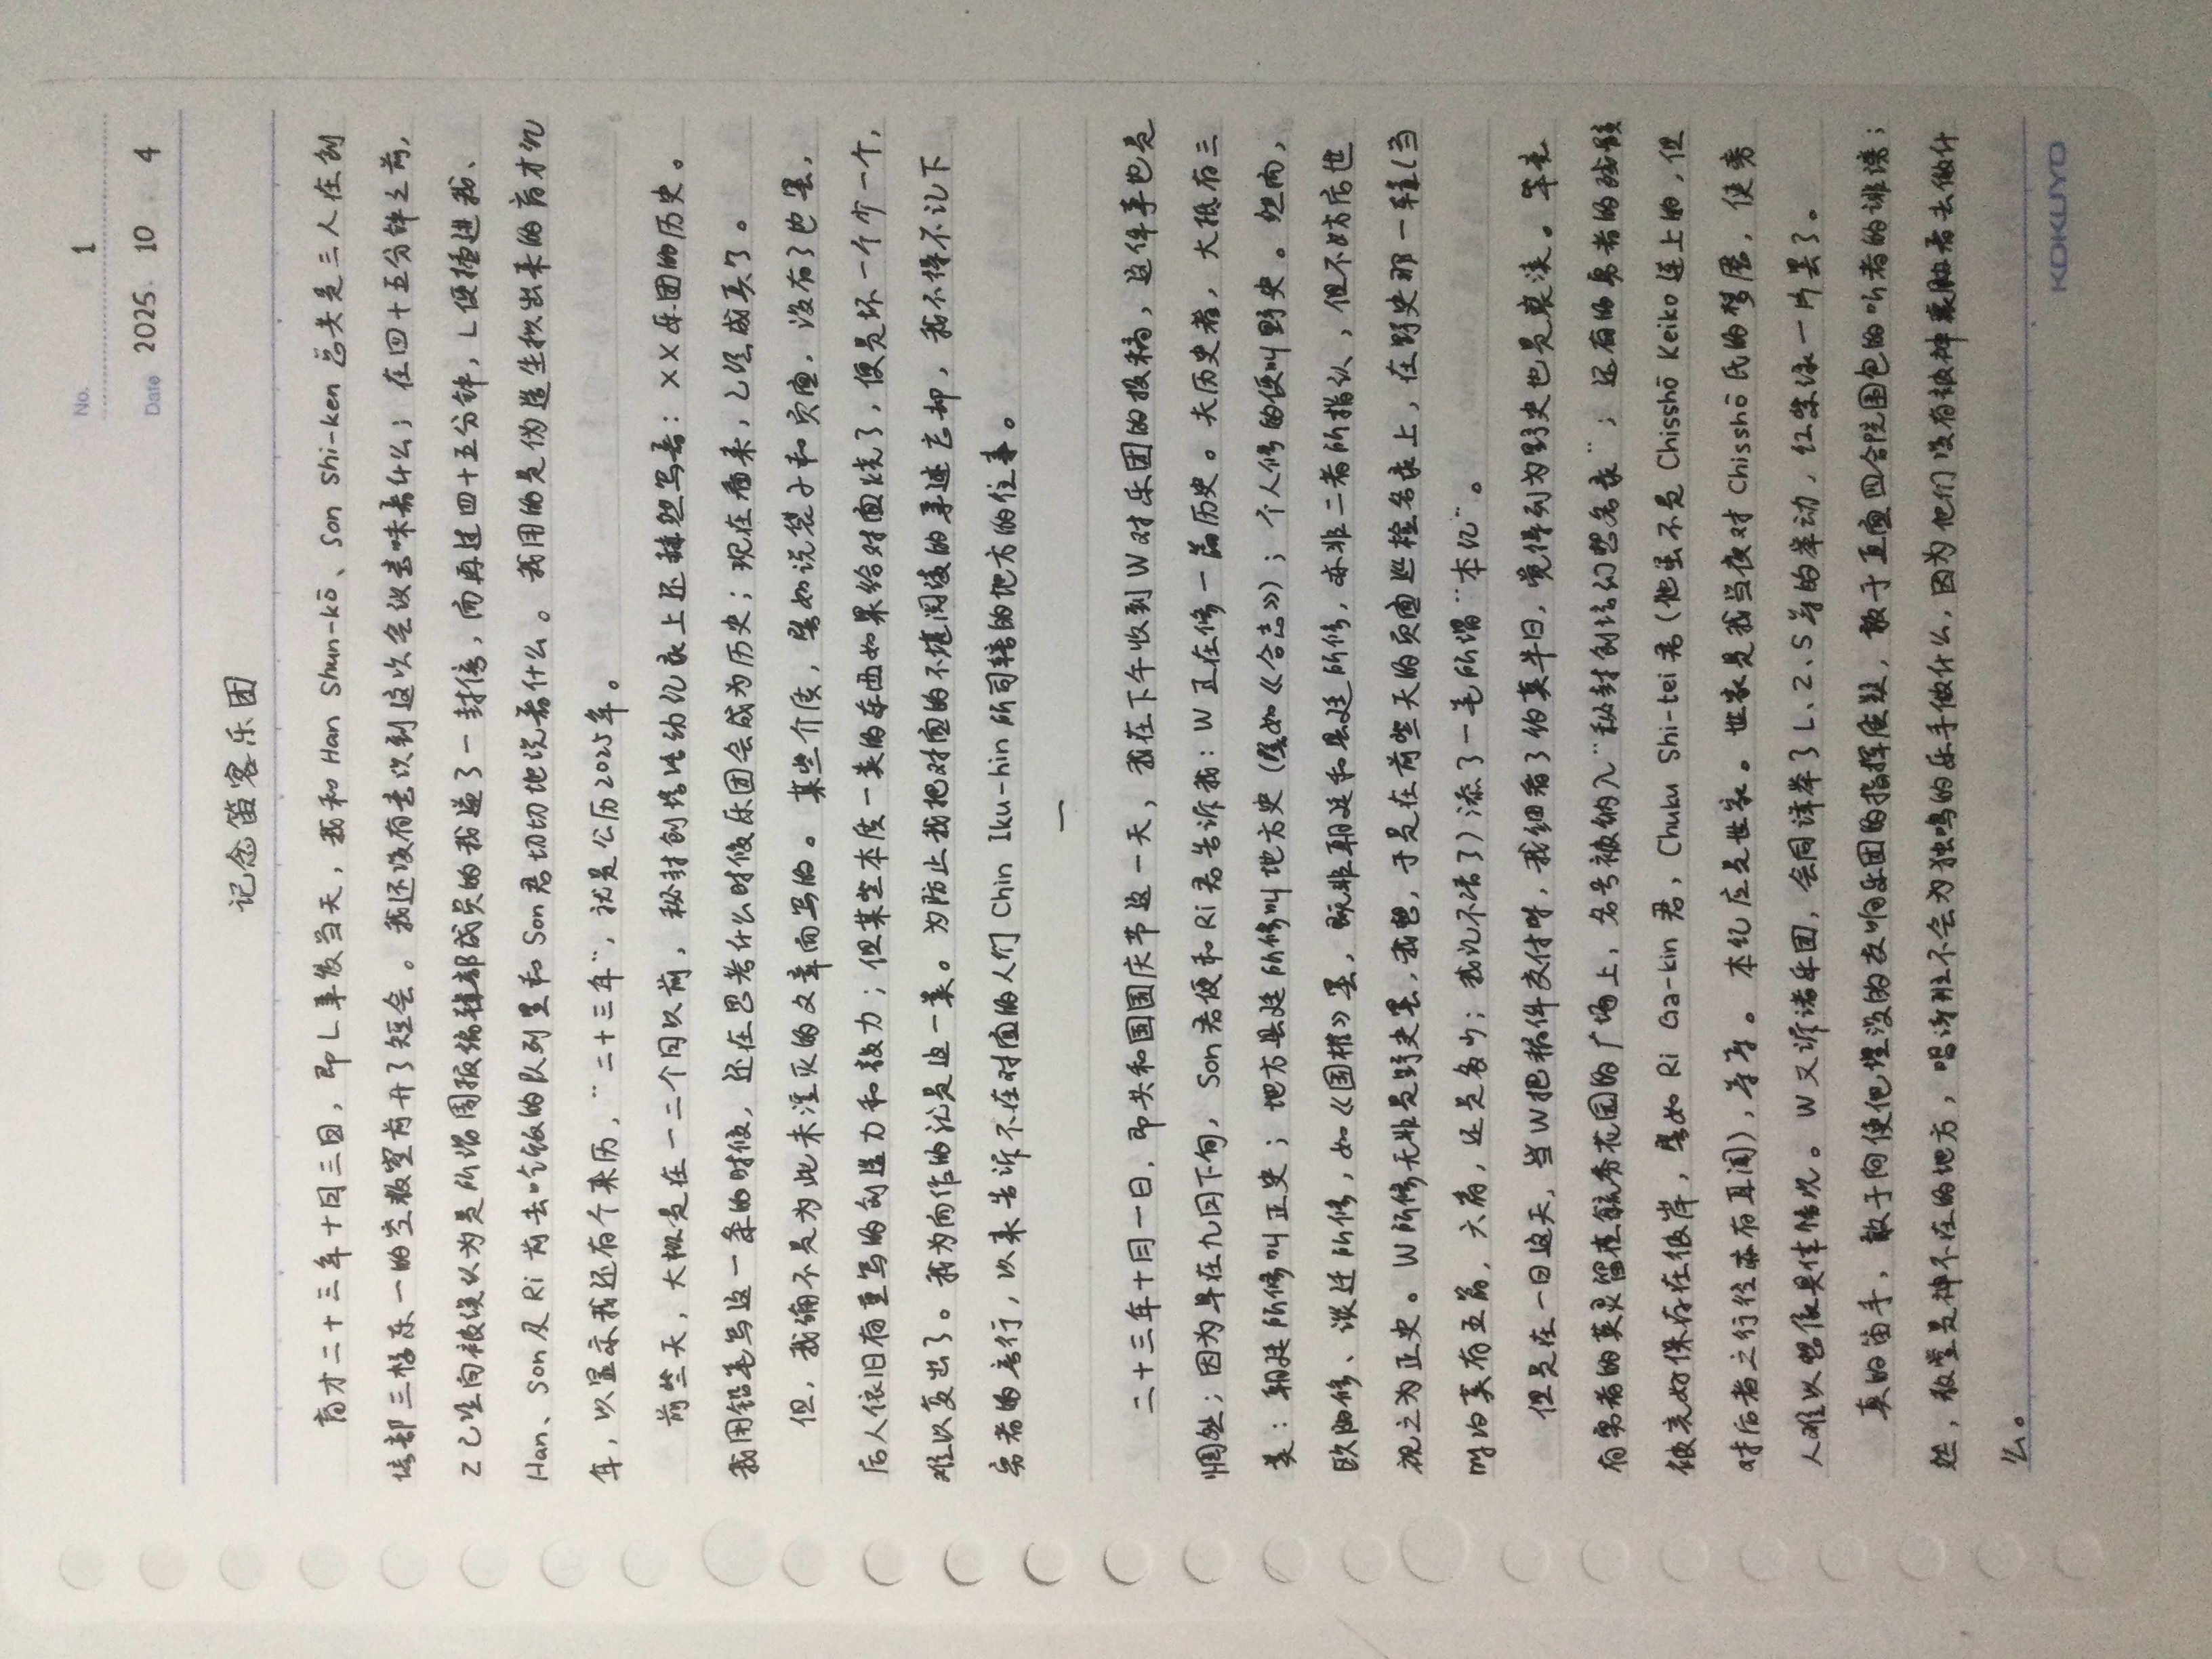 No. 1
Date 2025. 10 . 4
记念笛客乐团
育才二十三年十月三日，即L事发当天，我和 Han Shun-kō、Son Shi-ken 总共是三人在创
培部三楼东一的空教室前开了短会。我还没有意识到这次会议意味着什么；在四十五分钟之前，
Z已经向被误认为是所谓周报编辑部成员的我递了一封信，而再过四十五分钟，L便插进我、
Han、Son及Ri 前去吃饭的队列里和Son君切切地说着什么。我用的是伪造生拟出来的育才纪
年，以显示我还有个来历，“二十三年”，就是公历2025年。
前些天，大概是在一二个月以前，秘封创培活动纪录上还赫然写着：××乐团的历史。
我用铅笔写这一条的时候，还在思考什么时候乐团会成为历史；现在看来，已经成真了。
但，我确不是为此未湮灭的文章而写的。某些介质，譬如说袋子和页面，没有了也罢，
后人依旧有重写的创造力和毅力；但某些本质一类的东西如果给对面烧了，便是坏一个少一个，
难以复出了。我为向作的就是这一类。为防止我把对面的不堪阅读的事迹忘却，我不得不记下
勇者的言行，以来告诉不在对面的人们 Chin Iku-hin 所司辖的地方的往事。
一
二十三年十月一日，即共和国国庆节这一天，我在下午收到W对乐团的投稿，这件事也是
惘然；因为早在九月下旬，Son君便和Ri君告诉我：W正在修一篇历史。夫历史者，大抵有三
类：朝廷所修叫正史；地方县廷所修叫地方史（譬如《合志》）；个人修的便叫野史。然而，
欧阳修、谈迁所修，如《国榷》罢，既非朝廷和县廷所修，亦非二者所指认，但不妨后世
视之为正史。W所修无非是野史罢，我想，于是在前些天的页面巡检名录上，在野史那一类（当
时约莫有五篇，六篇，还是多少；我记不清了）添了一笔所谓“本纪”。
但是在一日这天，当W把稿件交付时，我细看了约莫半日，觉得列为野史也是亵渎。毕竟
有勇者的英灵留在毓秀花园的广场上，名号被纳入“秘封创培幻想名录”；还有的勇者的残骸
被完好保存在彼岸，譬如 Ri Ga-kin 君，Chuku Shi-tei 君（他虽不是 Chisshō Keiko 连上的，但
对后者之行径亦有耳闻），等等。本纪应是世家。世家是我当夜对Chisshō氏的梦魇，使旁
人难以想像具体情况。W又诉诸乐团，会同详举了L、Z、S等的举动，红紫绿一片罢了。
真的笛手，敢于向使他埋没的交响乐团的指挥质疑，敢于直面四合院围包的听者的诽谤；
然，教堂是神不在的地方，唱诗班不会为独鸣的乐手做什么，因为他们没有被神裹胁着去做什
么。
KOKUYO